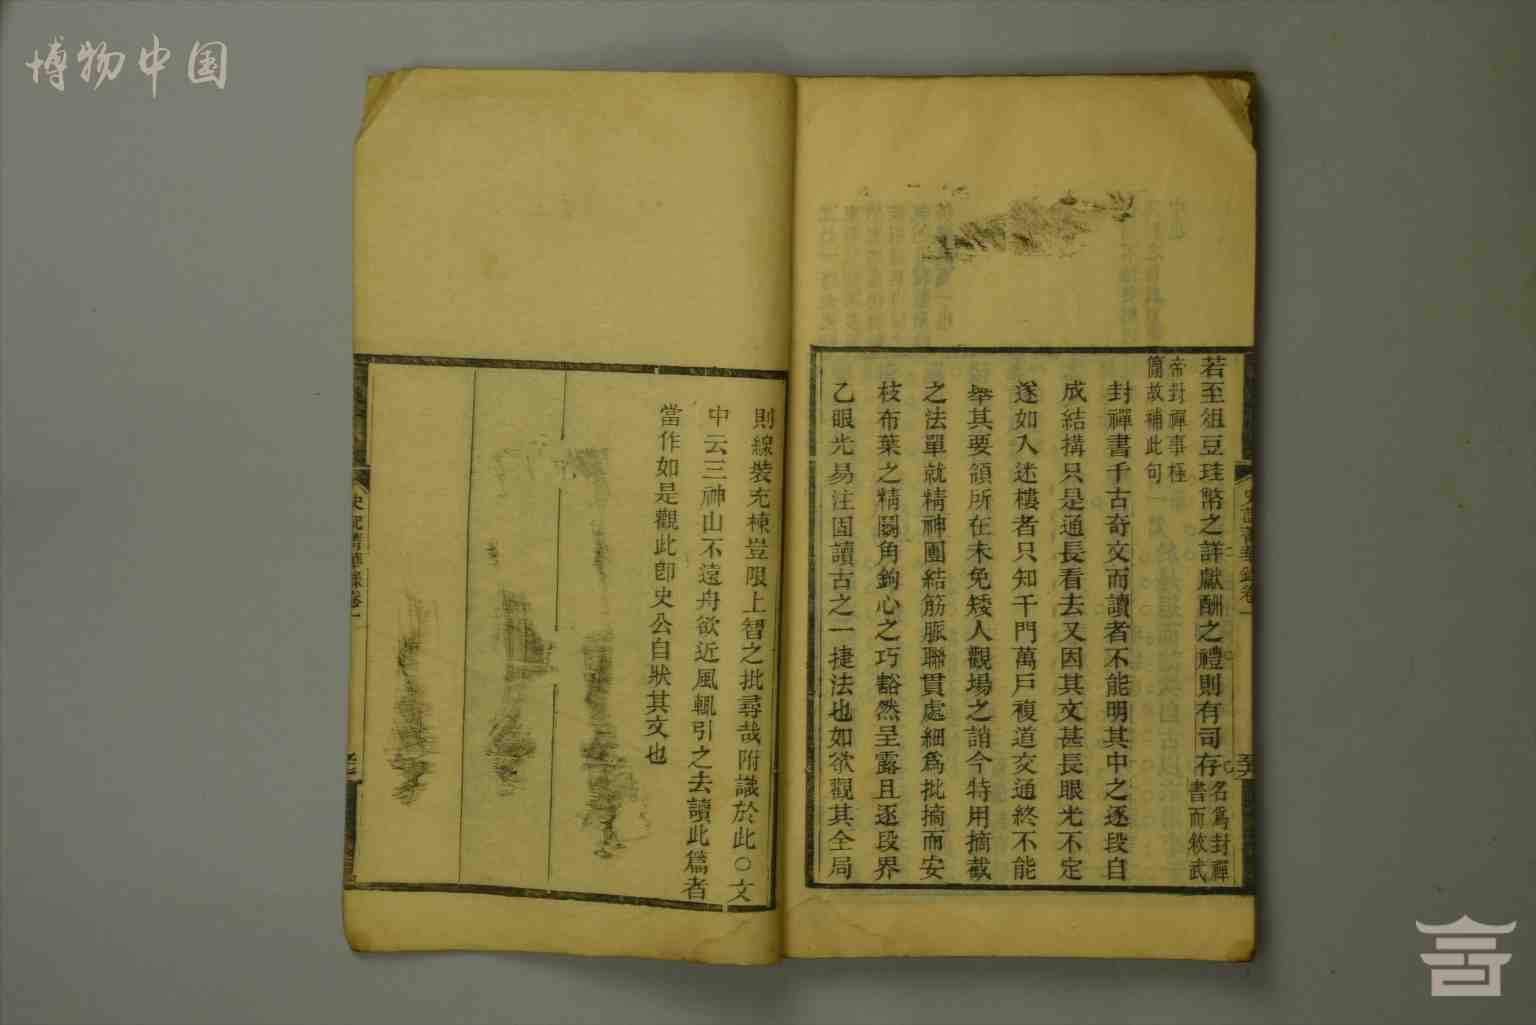 博物中国
若至俎豆珪幣之詳獻酬之禮則有司存名爲封禪書而敘武
帝封禪事極簡故補此句
封禪書千古奇文而讀者不能明其中之逐段自
成結搆只是通長看去又因其文甚長眼光不定
遂如入迷樓者只知千門萬戸複道交通終不能
舉其要領所在未免矮人觀場之誚今特用摘截
之法單就精神團結筋脈聯貫處細爲批摘而安
枝布葉之精鬭角鉤心之巧豁然呈露且逐段界
乙眼光易注固讀古之一捷法也如欲觀其全局
則線裝充棟豈限上智之批尋哉附識於此○文
中云三神山不遠舟欲近風輒引之去讀此篇者
當作如是觀此卽史公自狀其文也
史記菁華錄卷一